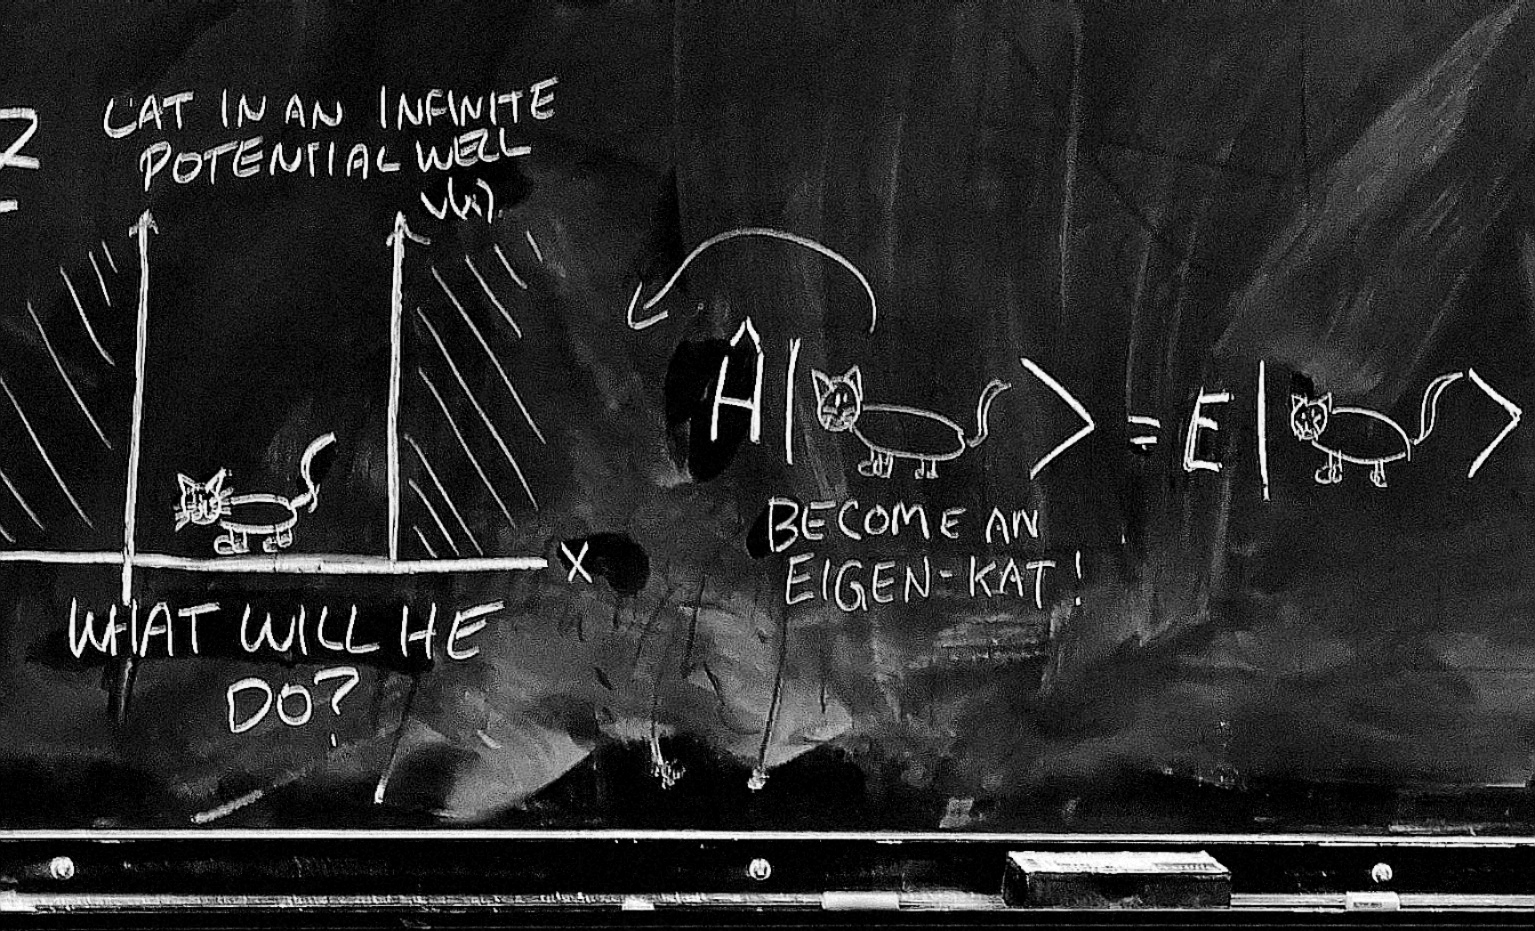 CAT IN AN INFINITE
POTENTIAL WELL
V(x)
X
WHAT WILL HE
DO?
Ĥ| > = E| >
BECOME AN
EIGEN-KAT!